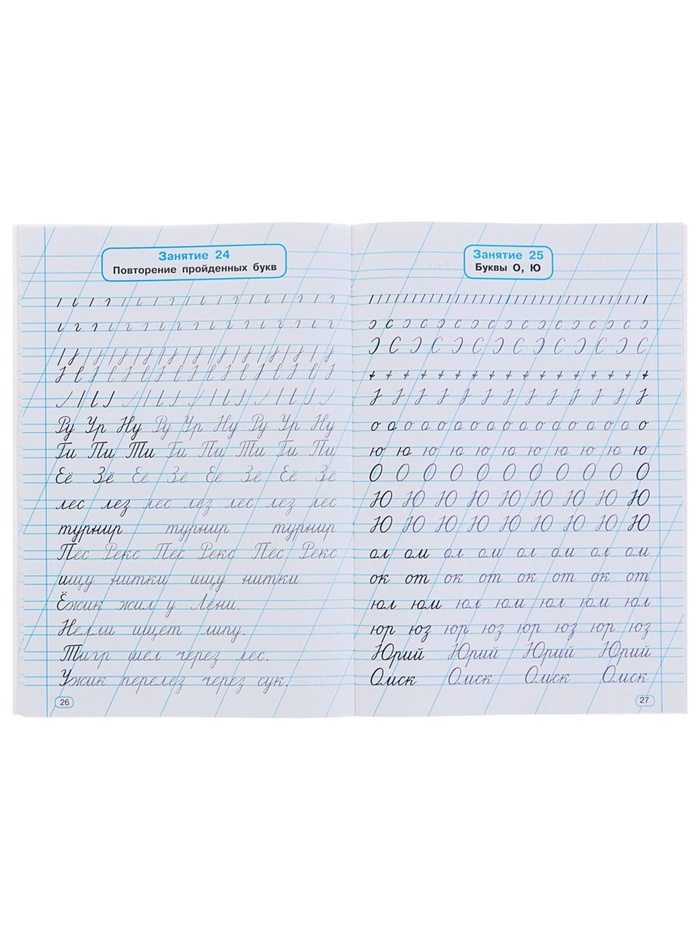 Занятие 24
Повторение пройденных букв
Ру Ур Ну Ру Ур Ну Ру Ур Ну
Ги Пи Ти Ги Пи Ти Ги Пи
Её Зе Её Зе Её Зе Её Зе
лес лез лес лез лес лез лес
турнир турнир турнир
Пес Рекс Пес Рекс Пес Рекс
ищу нитки ищу нитки
Ёжик жил у Лёни.
Нелли ищет липу.
Тигр шел через лес.
Ужик перелез через сук.
26
Занятие 25
Буквы О, Ю
о о о о о о о о о о о о о о о о о о
ю ю ю ю ю ю ю ю ю
О О О О О О О О О О О
Ю Ю Ю Ю Ю Ю Ю Ю Ю
Ю Ю Ю Ю Ю Ю Ю Ю Ю
ол ом ол ом ол ом ол ом
ок от ок от ок от ок от
юл юм юл юм юл юм юл
юр юз юр юз юр юз юр юз
Юрий Юрий Юрий Юрий
Омск Омск Омск Омск
27